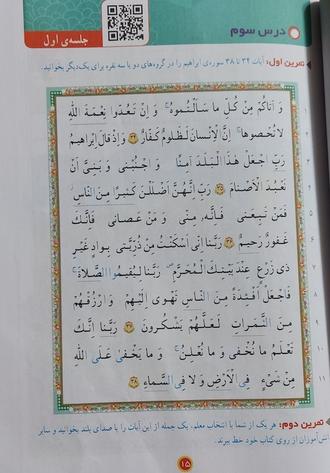 جلسه‌ی اول
درس سوم
تمرین اول: آیات ۳۴ تا ۳۸ سوره‌ی ابراهیم را در گروه‌های دو یا سه نفره برای یک‌دیگر بخوانید.
وَ آتاكُمْ مِنْ كُلِّ ما سَأَلْتُموهُ وَ اِنْ تَعُدّوا نِعْمَةَ اللهِ
لا تُحْصوها اِنَّ الْاِنْسانَ لَظَلومٌ كَفّارٌ ﴿۳۴﴾ وَ اِذْ قالَ اِبْراهيمُ
رَبِّ اجْعَلْ هٰذَا الْبَلَدَ آمِنًا وَ اجْنُبْني وَ بَنِيَّ اَنْ
نَعْبُدَ الْاَصْنامَ ﴿۳۵﴾ رَبِّ اِنَّهُنَّ اَضْلَلْنَ كَثيرًا مِنَ النّاسِ
فَمَنْ تَبِعَني فَاِنَّه مِنّي وَ مَنْ عَصاني فَاِنَّكَ
غَفورٌ رَحيمٌ ﴿۳۶﴾ رَبَّنا اِنّي اَسْكَنْتُ مِنْ ذُرِّيَّتي بِوادٍ غَيْرِ
ذي زَرْعٍ عِنْدَ بَيْتِكَ الْمُحَرَّمِ رَبَّنا لِيُقيمُوا الصَّلاةَ
فَاجْعَلْ اَفْئِدَةً مِنَ النّاسِ تَهْوي اِلَيْهِمْ وَ ارْزُقْهُمْ
مِنَ الثَّمَراتِ لَعَلَّهُمْ يَشْكُرونَ ﴿۳۷﴾ رَبَّنا اِنَّكَ
تَعْلَمُ ما نُخْفي وَ ما نُعْلِنُ وَ ما يَخْفىٰ عَلَى اللهِ
مِنْ شَيْءٍ فِي الْاَرْضِ وَ لا فِي السَّماءِ ﴿۳۸﴾
تمرین دوم: هر یک از شما با انتخاب معلم، یک جمله از این آیات را با صدای بلند بخوانید و سایر
دانش‌آموزان از روی کتاب خود خط ببرند.
۱۵